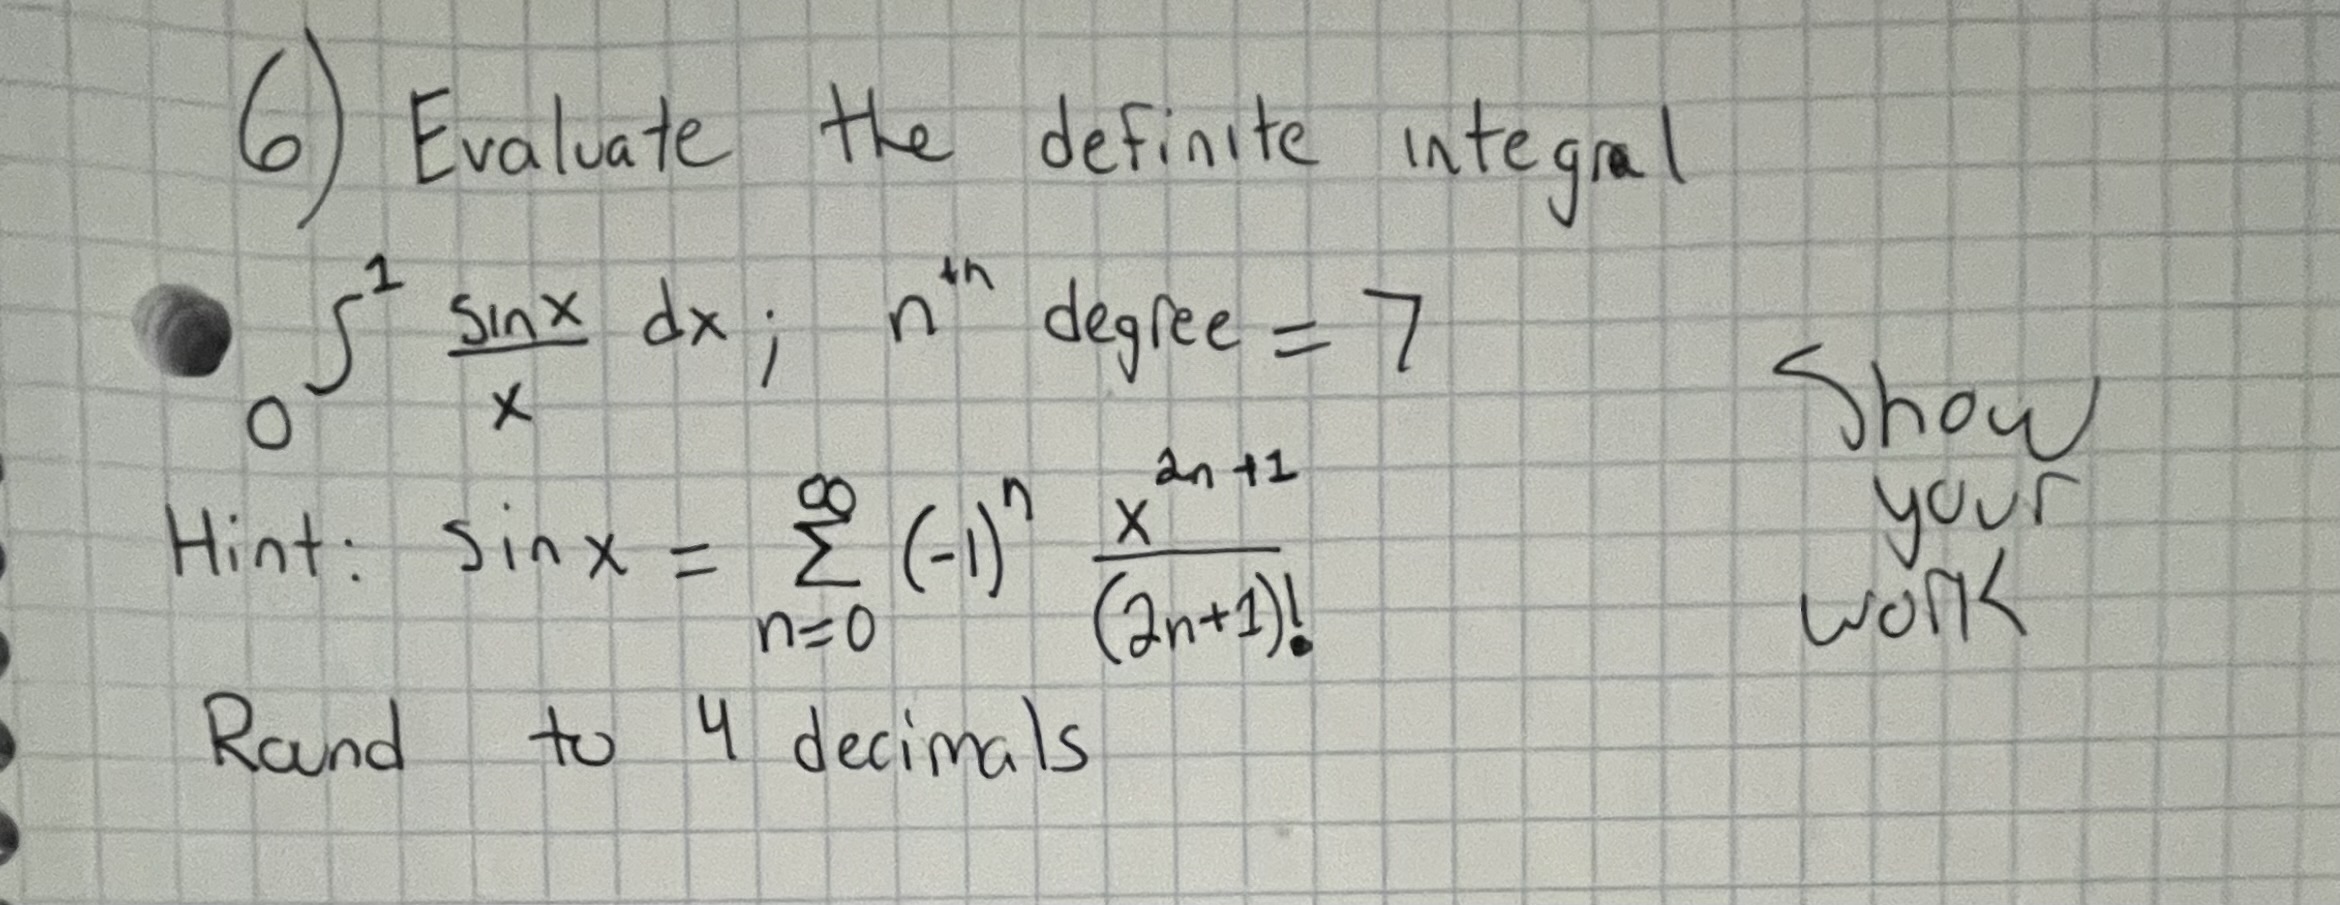 6) Evaluate the definite integral
0∫¹ sinx/x dx; nᵗʰ degree = 7
Show
your
work
Hint: sinx = ∞Σn=0 (-1)ⁿ x²ⁿ⁺¹/(2n+1)!
Round to 4 decimals